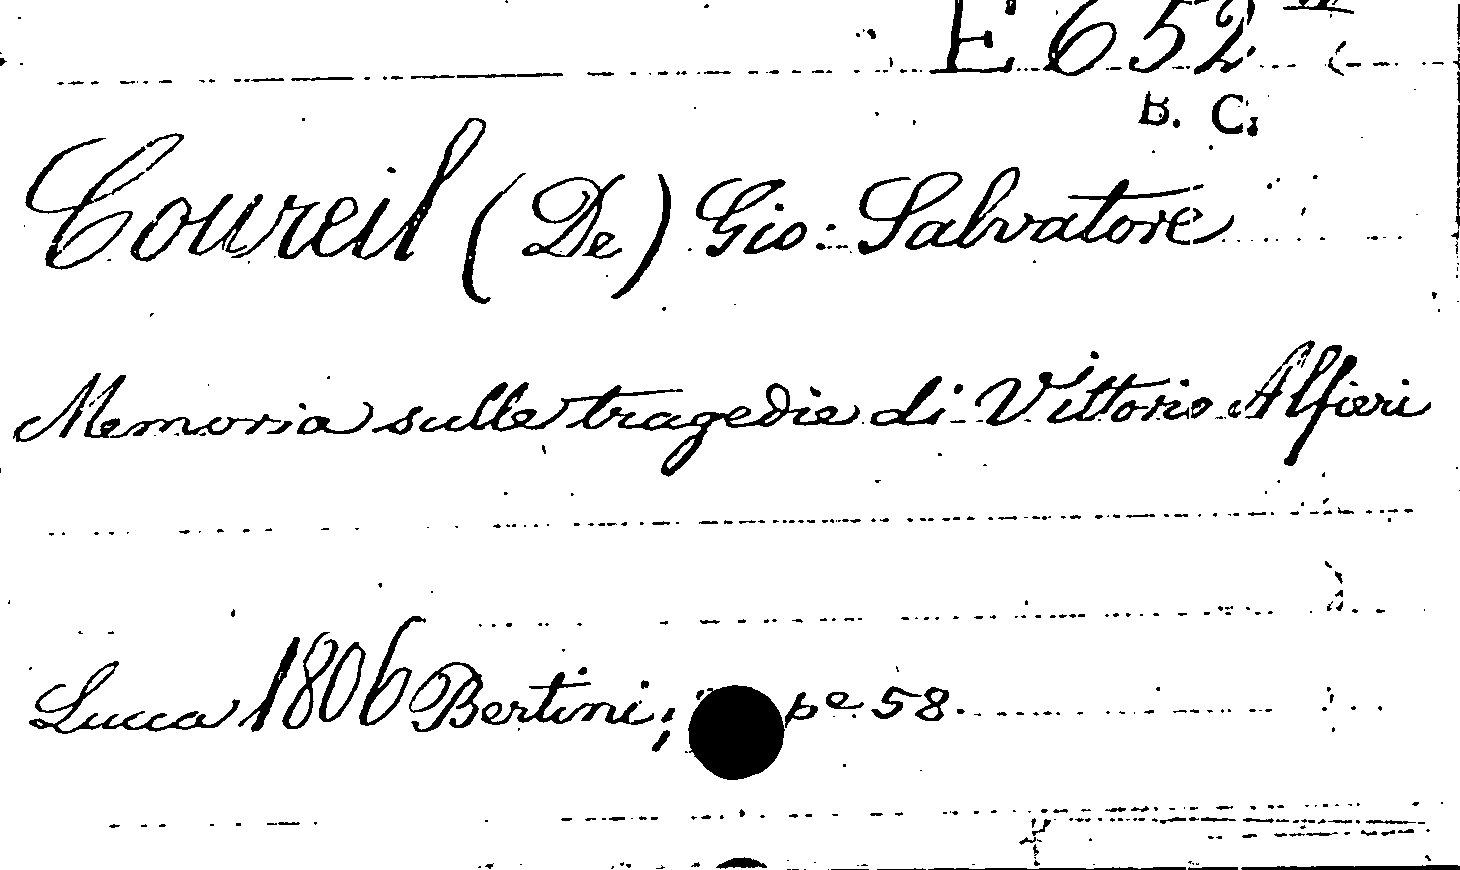 E 652
B. C.
Coureil (De) Gio: Salvatore
Memoria sulle tragedie di Vittorio Alfieri
Lucca 1806 Bertini; pe 58.